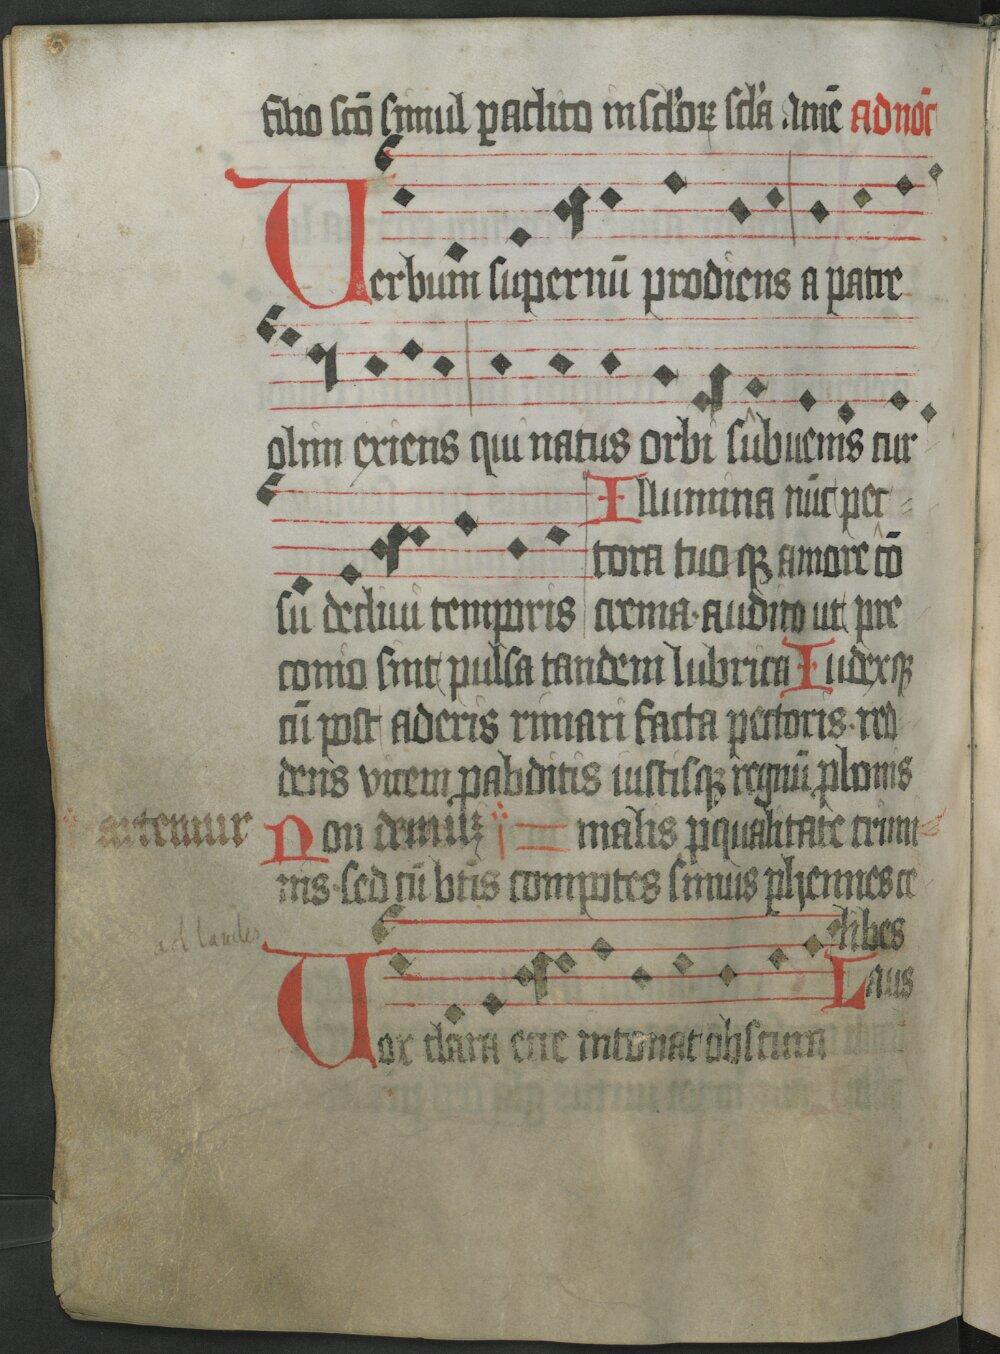 filio scō simul paclito in sclor scla Amē ad nōc
Verbum supernū prodiens a patre
olim exiens qui natus orbi subuenis cur
su decliui temporis
Illumina nūc pec
tora tuo qz amore cō
crema. audito ut pre
conio sint pulsa tandem lubrica Iudexqz
cū post aderis rimari facta pectoris. red
dens vicem p abditis iustisqz regnū p bonis
artemur
Non demūz malis p qualitate crimi
nis. sed cū btis compotes simus phennes ce
libes
ad laudes
Laus
Vox clara ecce intonat obscura